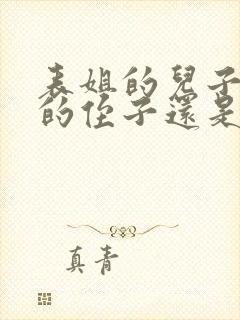 表姐的兒子
的侄子還是
真青